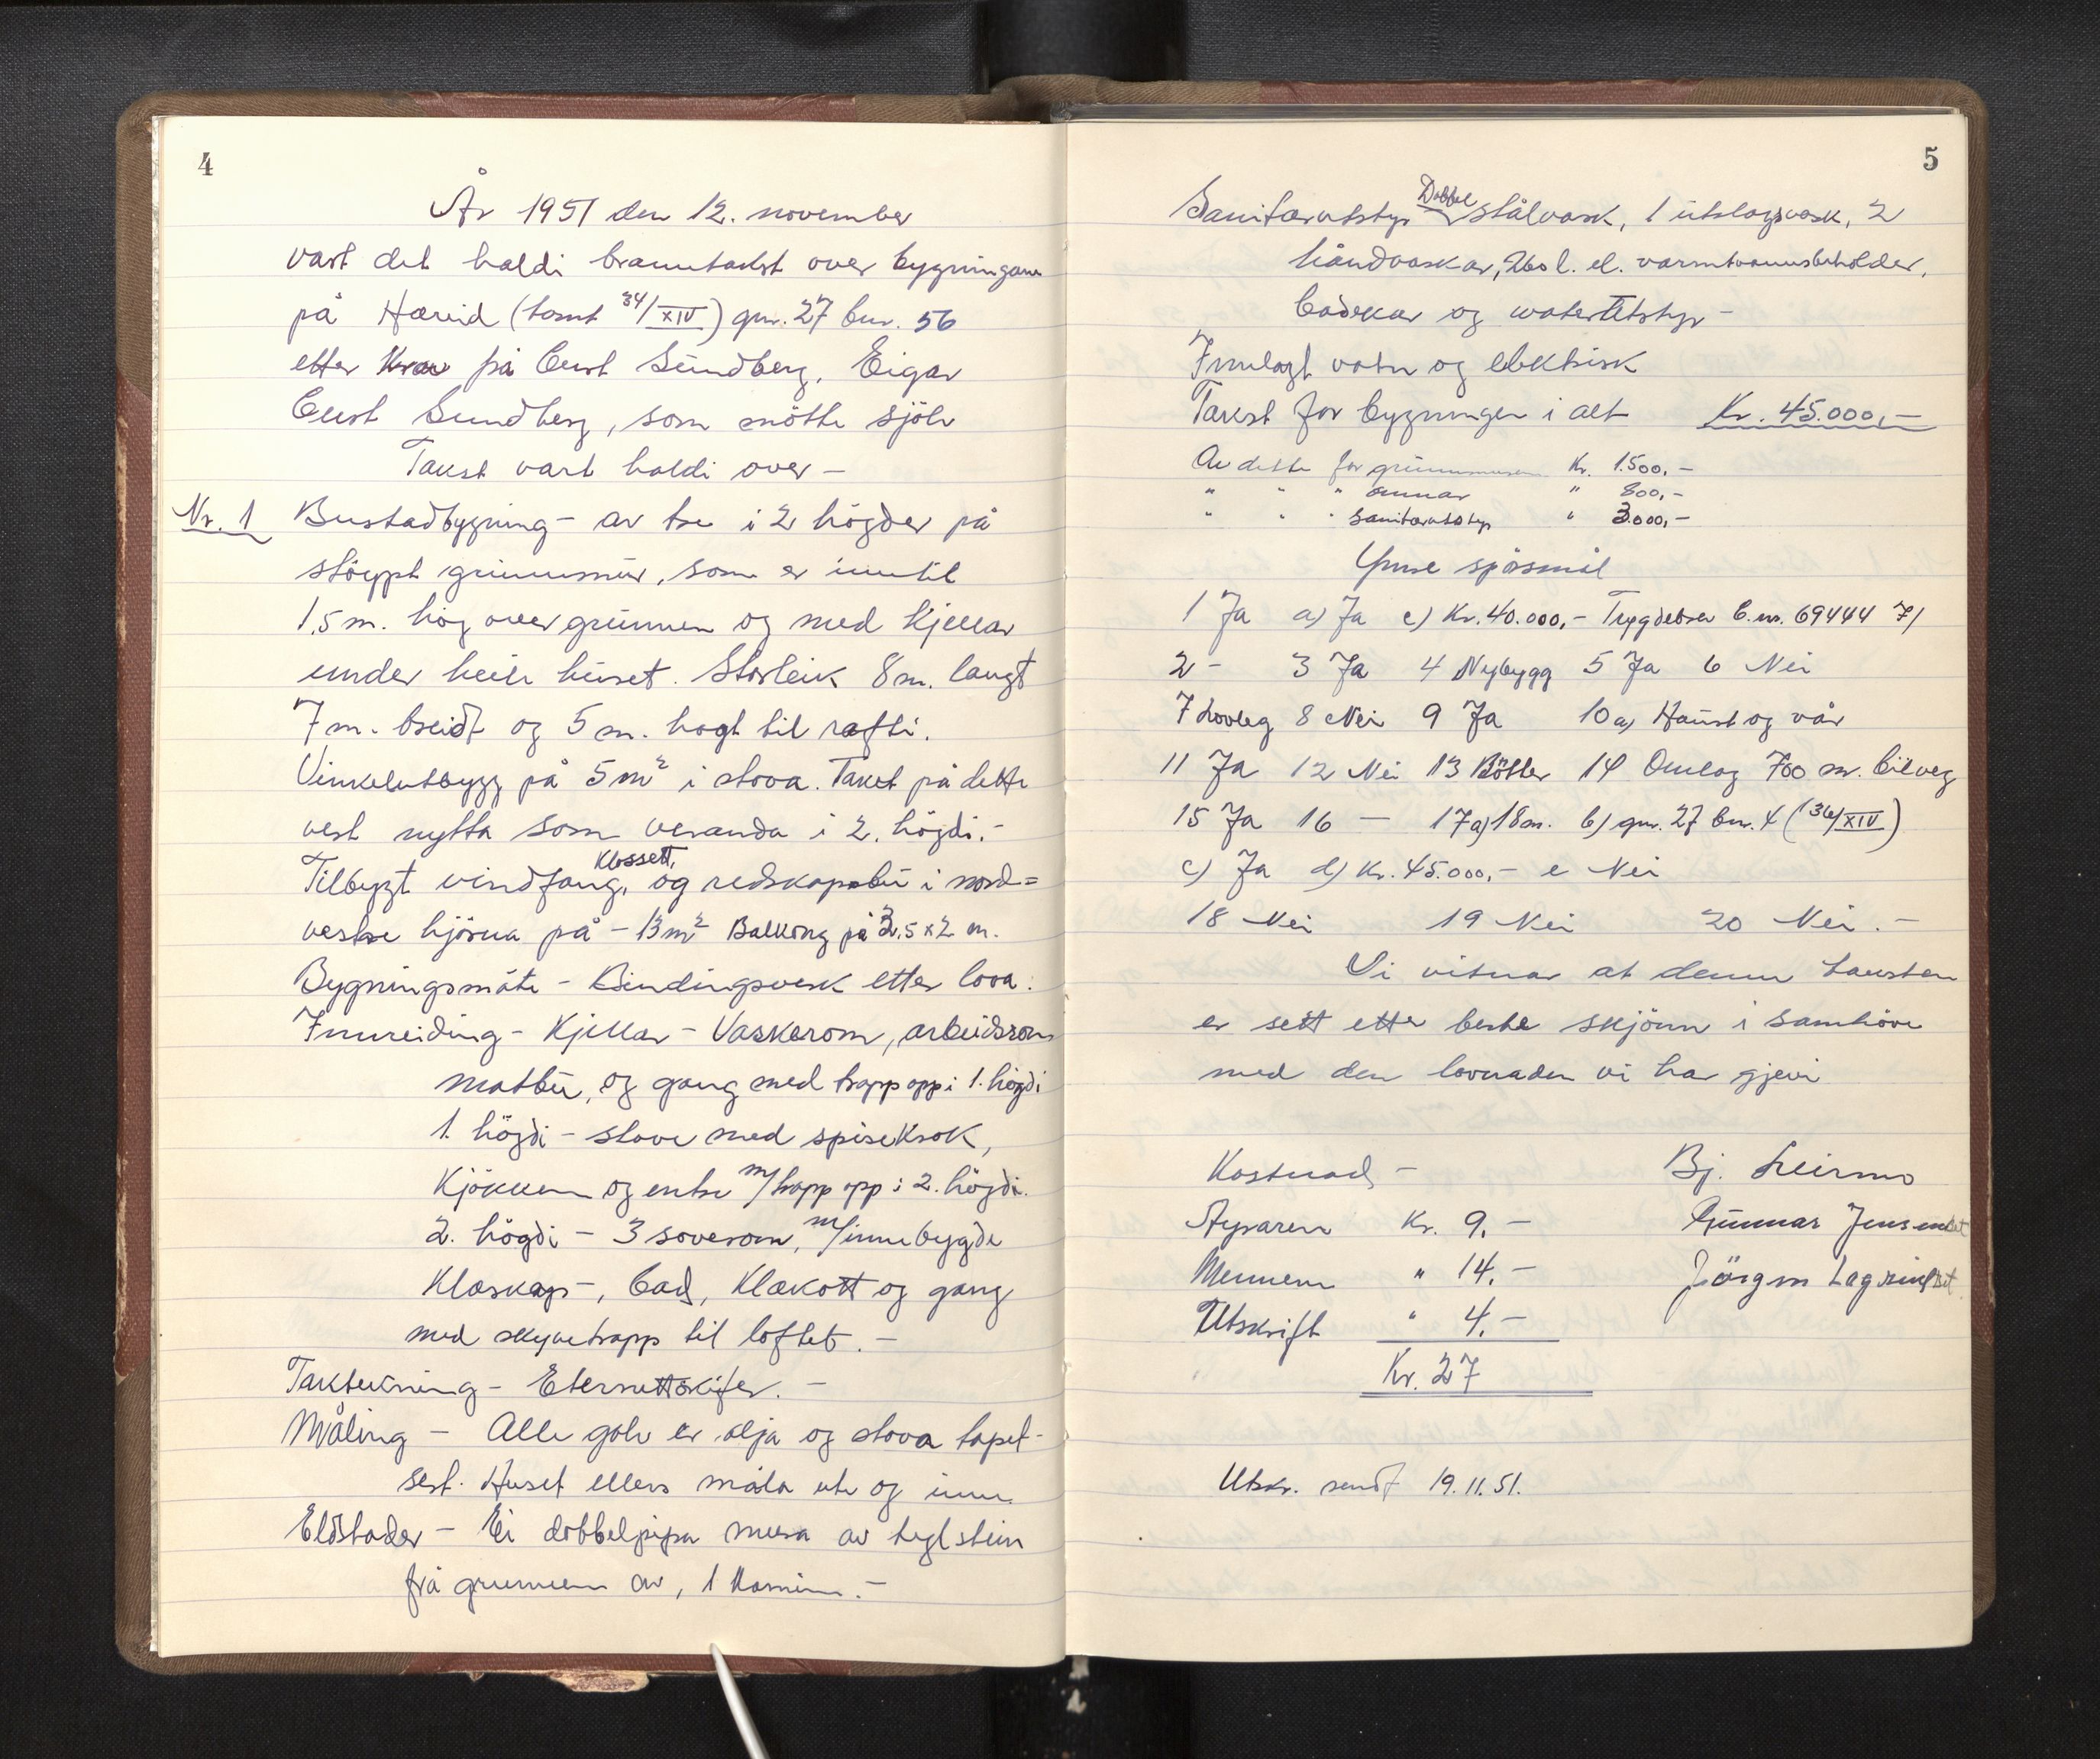 4
År 1951 den 12. november
vart det haldi branntakst over bygningane
på Hæreid (tomt 34/XIV) gnr. 27 bnr. 56
etter krav på Curt Sundberg. Eigar
Curt Sundberg, som mötte sjölv
Takst vart haldi over -
Nr. 1 Bustadbygning - av tre i 2 högder på
stöypt grunnmur, som er inntil
1,5 m. hög over grunnen og med kjellar
under heile huset. Storleik 8 m. langt
7 m. breidt og 5 m. högt til rafti.
Vinkelutbygg på 5 m² i stova. Taket på dette
vert nytta som veranda i 2. högdi. -
Tilbygt vindfang, klossett, og redskapsbu i nord=
vestre hjörna på - 13 m² Balkong på 3,5 x 2 m.
Bygningsmåte - Bindingsverk etter lova.
Innreiding - Kjellar - Vaskerom, arbeidsrom
matbu, og gang med trapp opp i 1. högdi
1. högdi - stove med spisekrok,
Kjökken og entre m/trapp opp i 2. högdi.
2. högdi - 3 soverom, m/innebygde
Klæskap -, bad, klækott og gang
med skyvetrapp til loftet. -
Taktekning - Eternittskifer. -
Måling - Alle golv er olja og stova tapet-
sert. Huset ellers måla ute og inne
Eldstader - Ei dobbelpipa mura av teglstein
frå grunnen av, 1 kamin. -
5
Sanitærutstyr Dobbel stålvask, 1 utslagsvask, 2
håndvaskar, 260 l. el. varmtvannsbeholder,
badekar og waterutstyr -
Innlagt vatn og elektrisk
Takst for bygningen i alt Kr. 45.000,-
Av dette for grunnmuren Kr. 1.500,-
" " " omnar " 800,-
" " " sanitærutstyr " 3.000,-
Ymse spörsmål
1 Ja a) Ja c) Kr. 40.000,- Trygdebrev b.nr. 69444 71
2 - 3 Ja 4 Nybygg 5 Ja 6 Nei
7 Lovleg 8 Nei 9 Ja 10 a) Haust og vår
11 Ja 12 Nei 13 Bötter 14 Omlag 700 m. bilveg
15 Ja 16 — 17 a) 18 m. b) gnr. 27 bnr. 4 (136/XIV)
c) Ja d) Kr. 45.000,- e Nei
18 Nei 19 Nei 20 Nei. -
Vi vitnar at denne taksten
er sett etter beste skjönn i samhöve
med den lovnaden vi har gjevi
Kostnad - Bj. Leirmo
Styraren Kr. 9.- Gunnar Jensen
Mennene " 14.- Jörgen
Utskrift " 4.-
Kr. 27
Utskr. sendt 19.11.51.